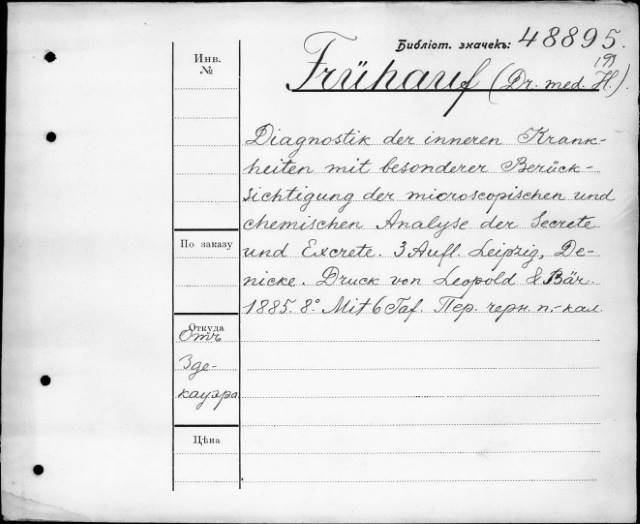 Библіот. значекъ: 48895.
Инв.
№
Frühauf (Dr. med. H.).
Diagnostik der inneren Krank-
heiten mit besonderer Berück-
sichtigung der microscopischen und
chemischen Analyse der Secrete
По заказу
und Excrete. 3 Aufl. Leipzig, De-
nicke. Druck von Leopold & Bär.
1885. 8° Mit 6 Taf. Пер. черн. п.-кал.
Откуда
Отъ
Зде-
кауэра
Цѣна